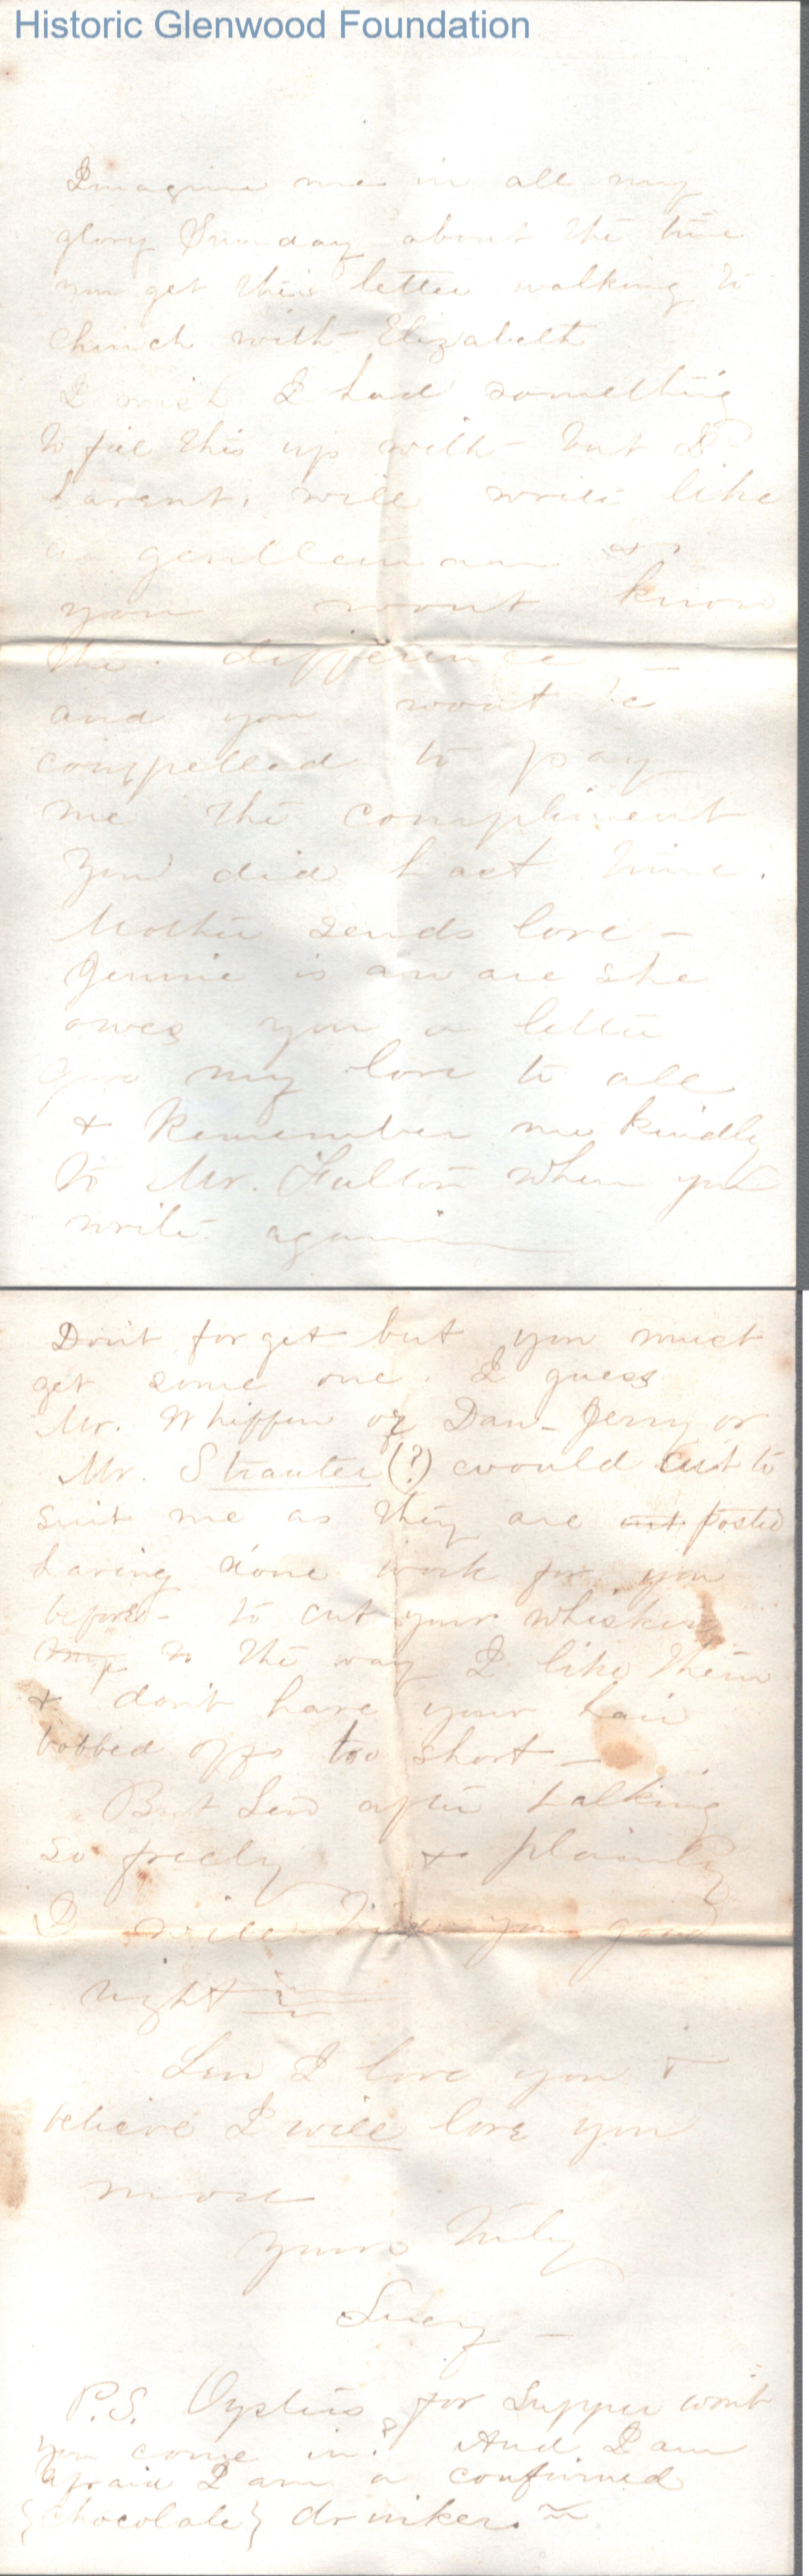 Historic Glenwood Foundation
Imagine me in all my
glory Sunday about the time
you get this letter walking to
church with Elizabeth
I wish I had something
to fill this up with - but I
havent, will write like
a gentleman &
you wont know
the difference
and you wont be
compelled to pay
me the compliment
you did last time.
Mother sends love -
Jennie is aware she
owes you a letter
give my love to all
& Remember me kindly
to Mr. Fulton when you
write again
Dont forget but you must
get some one. I guess
Mr. Whiffin or Dan - Jerry or
Mr. Strauter (?) would cut to
suit me as they are not posted
having done work for you
before - to cut your whiskers
to the way I like them
& don't have your hair
bobbed off too short -
But Lew after talking
so freely & plainly
I will bid you good
night
Lew I love you &
believe I will love you
more
Yours Truly
Lucy -
P.S. Oysters for supper wont
you come in? And I am
afraid I am a confirmed
{chocolate} drinker.